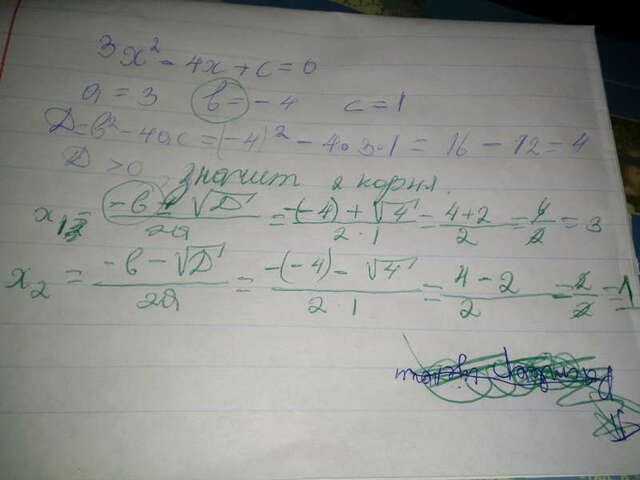 3x² - 4x + c = 0
a = 3 b = -4 c = 1
D = b² - 4ac = (-4)² - 4·3·1 = 16 - 12 = 4
D > 0 значит 2 корня.
x₁ = -b + √D / 2a = -(-4) + √4 / 2·1 = 4+2 / 2 = 6 / 2 = 3
x₂ = -b - √D / 2a = -(-4) - √4 / 2·1 = 4 - 2 / 2 = 2 / 2 = 1